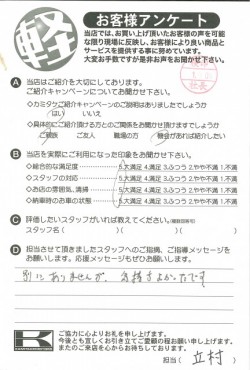 軽
お客様アンケート
当店では、お買上げ頂いたお客様の声を可能な
な限り現場に反映し、お客様により良い商品と
サービスを提供する事に努めています。
大変お手数ですが是非お声をお聞かせ下さい。
社長
A 当店はご紹介を大切にしております。
ご紹介キャンペーンについてお聞かせ下さい
・カミタケご紹介キャンペーンのご説明はありましたでしょうか
はい いいえ
・具体的にご紹介頂ける方とのご関係をお聞かせ頂けますでしょうか
ご親戚 ご友人 職場の方 機会があれば紹介したい
B 当店を実際にご利用になった印象をお聞かせ下さい。
◇総合的な満足度 5.大満足 4.満足 3.ふつう 2.やや不満 1.不満
◇スタッフの対応 5.大満足 4.満足 3.ふつう 2.やや不満 1.不満
◇お店の雰囲気、清掃 5.大満足 4.満足 3.ふつう 2.やや不満 1.不満
◇納車時のお車の状態 5.大満足 4.満足 3.ふつう 2.やや不満 1.不満
C 評価したいスタッフがいれば教えてください。(複数回答可)
スタッフ名( )( )( )
D 担当させて頂きましたスタッフへのご指摘、ご指導メッセージを
お願いします。応援メッセージもぜひお願いします。
別にありませんが、気持ちよかったです
K
ご協力に心よりお礼を申し上げます。
今後とも宜しくお引き立てご愛顧の程お願い申し上げます。
またのご来店を心からお待ちしております。
担当( 立村 )